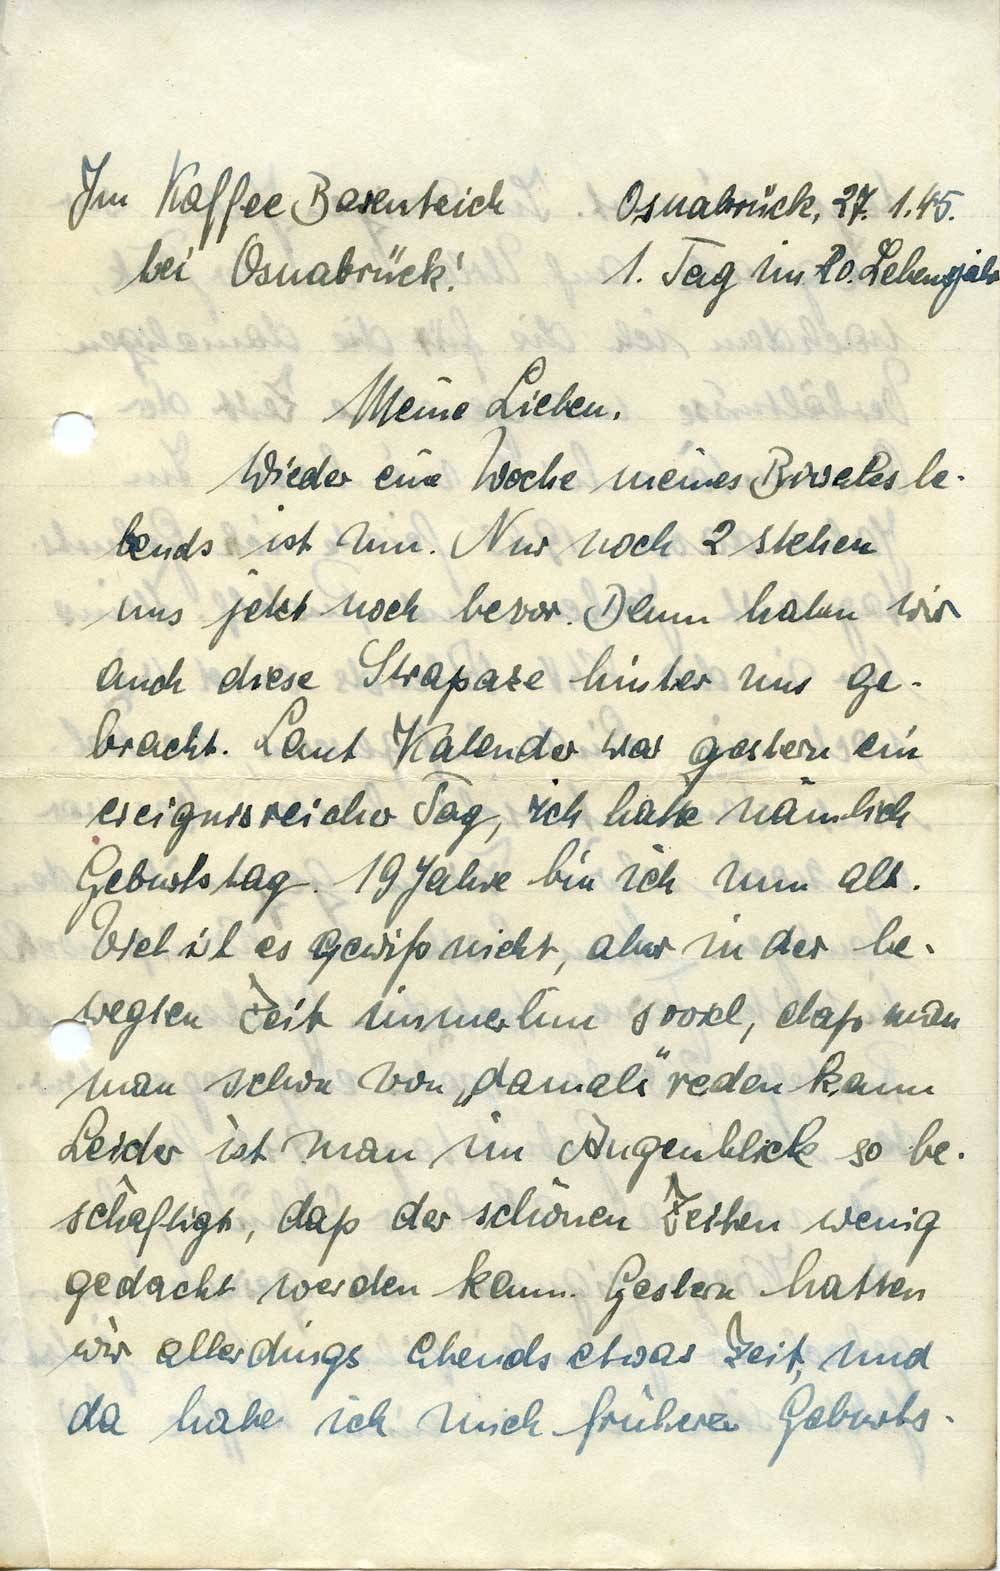 Im Kaffee Barenteich
bei Osnabrück!
Osnabrück, 27.1.45.
1. Tag im 20. Lebensjahr
Meine Lieben.
Wieder eine Woche meines le-
bends ist um. Nur noch 2 stehen
uns jetzt noch bevor. Dann haben wir
auch diese Strapaze hinter uns ge-
bracht. Laut Kalender war gestern ein
ereignisreicher Tag, ich hatte nämlich
Geburtstag. 19 Jahre bin ich nun alt.
Viel ist es gewiß nicht, aber in der be-
wegten Zeit immerhin soviel, daß man
man schon von „damals" reden kann
Leider ist man im Augenblick so be-
schäftigt, daß der schönen Zeiten wenig
gedacht werden kann. Gestern hatten
wir allerdings abends etwas Zeit, und
da habe ich mich früherer Geburts-